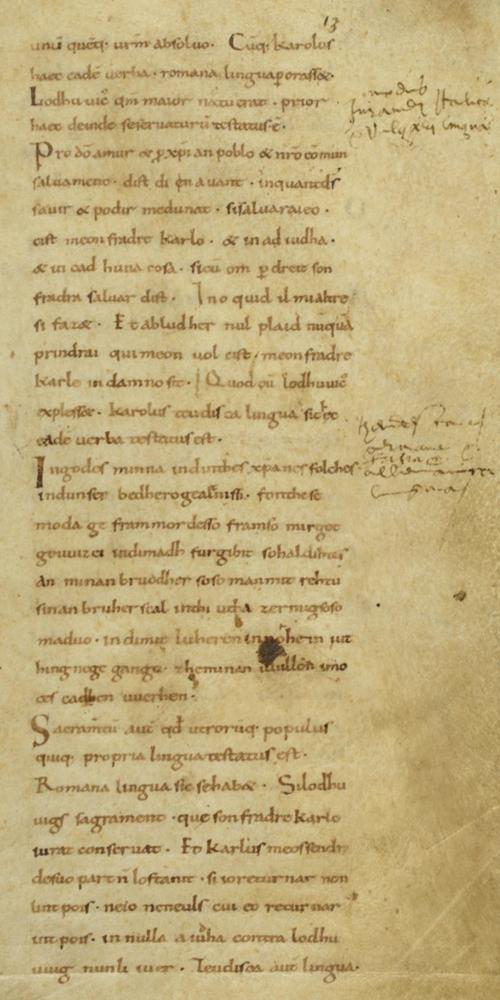 13
unū quēq; urm absoluo. Cūq; karolus
haec eadē uerba romana lingua porassȩ.
Lodhuuic̄ qm maior natu erat. prior
haec deinde seseruaturū testatus ē.
Pro dō amur & p xp̄ian poblo & nrō cōmun
saluament. dist di en auant. inquantdš
sauir & podir medunat. sisaluaraieo.
cist meon fradre karlo. & in ad iudha.
& in cad huna cosa. sicū om p dreit son
fradra saluar dist. Ino quid il mialtre
si faz&. Et abludher nul plaid nūquā
prindrai qui meon uol cist. meonfradre
karle in damno sit. Quod cū lodhuuic̄
explesset. karolus teudisca lingua sic
eadē uerba testatus est.
Ingodes minna indinthes xpanes folches
indunser bedhero gealtnissi. fonthese
moda ge frammordesso framso mirgot
geuuizci indimadh furgibit sohaldihtes
an minan bruodher soso manmit rehtu
sinan bruher scal inthi utha zermigsoso
maduo. indimit luheren in nohein iut
hing nege gango. zheminan uuillon imo
ces cadhen uuerhen.
Sacramtū aut qd utrorūq; populus
quiq; propria lingua testatus est.
Romana lingua sic se hab&. Silodhu
uigs sagrament. que son fradre karlo
iurat conseruat. Et karlus meossendr
desuo part n̄ lostanit. si ioreturnar non
lint pois. neio neneuls cui eo returnar
int pois. in nulla aiudha contra lodhu
uuig nunli iuer. Teudisca aut lingua.